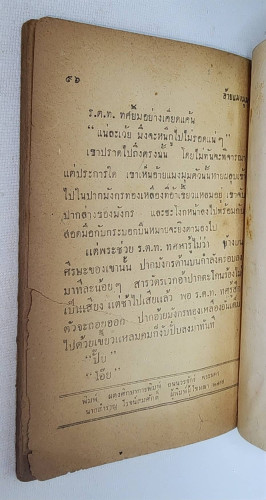 ๕๖
ร.ต.ท. ทศยิ้มอย่างเคียดแค้น
"แน่ละเว้ย มึงจะหนีกูไปไม่รอดแน่ ๆ"
เขาปราดไปถึงตรงนั้น โดยไม่ทันจะพิจารณา
แต่ประการใด เขาเห็นอ้ายแมงมุมตัวนั้นหายแอบเข้า
ไปในปากมังกรทองเหลืองที่อ้าเขี้ยวแหลมอยู่
ปากล่างของมังกร และชะโงกหน้าลงไปพร้อมกับ
สอดมือกับกระบอกปืนหมายจะยิงตามลงไป
แต่พระช่วย ร.ต.ท. ทศหารู้ไม่ว่า
ศีรษะของเขานั้น ปากมังกรด้านบนกำลังครอบลง
มาทีละน้อย ๆ สารวัตรเวกอ้าปากตะโกน
เป็นเสียง แต่ช้าไปเสียแล้ว พอ ร.ต.ท.
ตัวจะถอยออก ปากอ้ายมังกรทองเหลือง
ไปด้วยเขี้ยวแหลมคมก็งับปับลงมาทันที
"ปั๊บ"
"โอ๊ย"
พิมพ์